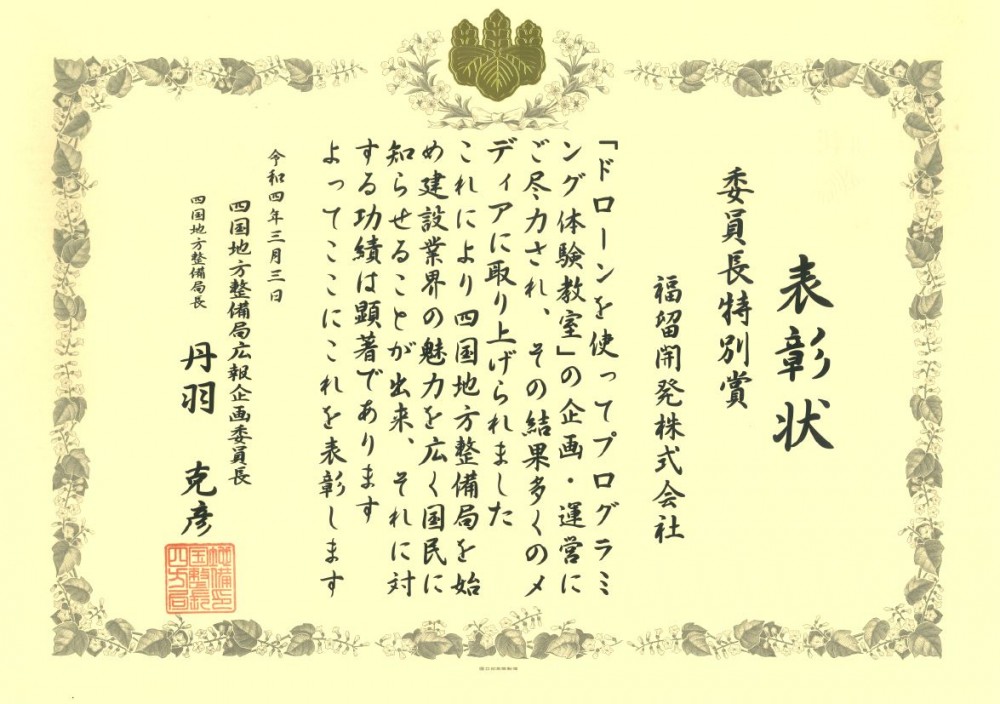 表彰状
委員長特別賞
福留開発株式会社
「ドローンを使ってプログラミ
ング体験教室」の企画・運営に
ご尽力され、その結果多くのメ
ディアに取り上げられました
これにより四国地方整備局を始
め建設業界の魅力を広く国民に
知らせることが出来、それに対
する功績は顕著であります
よってここにこれを表彰します
令和四年三月三日
四国地方整備局広報企画委員長
四国地方整備局長 丹羽 克彦